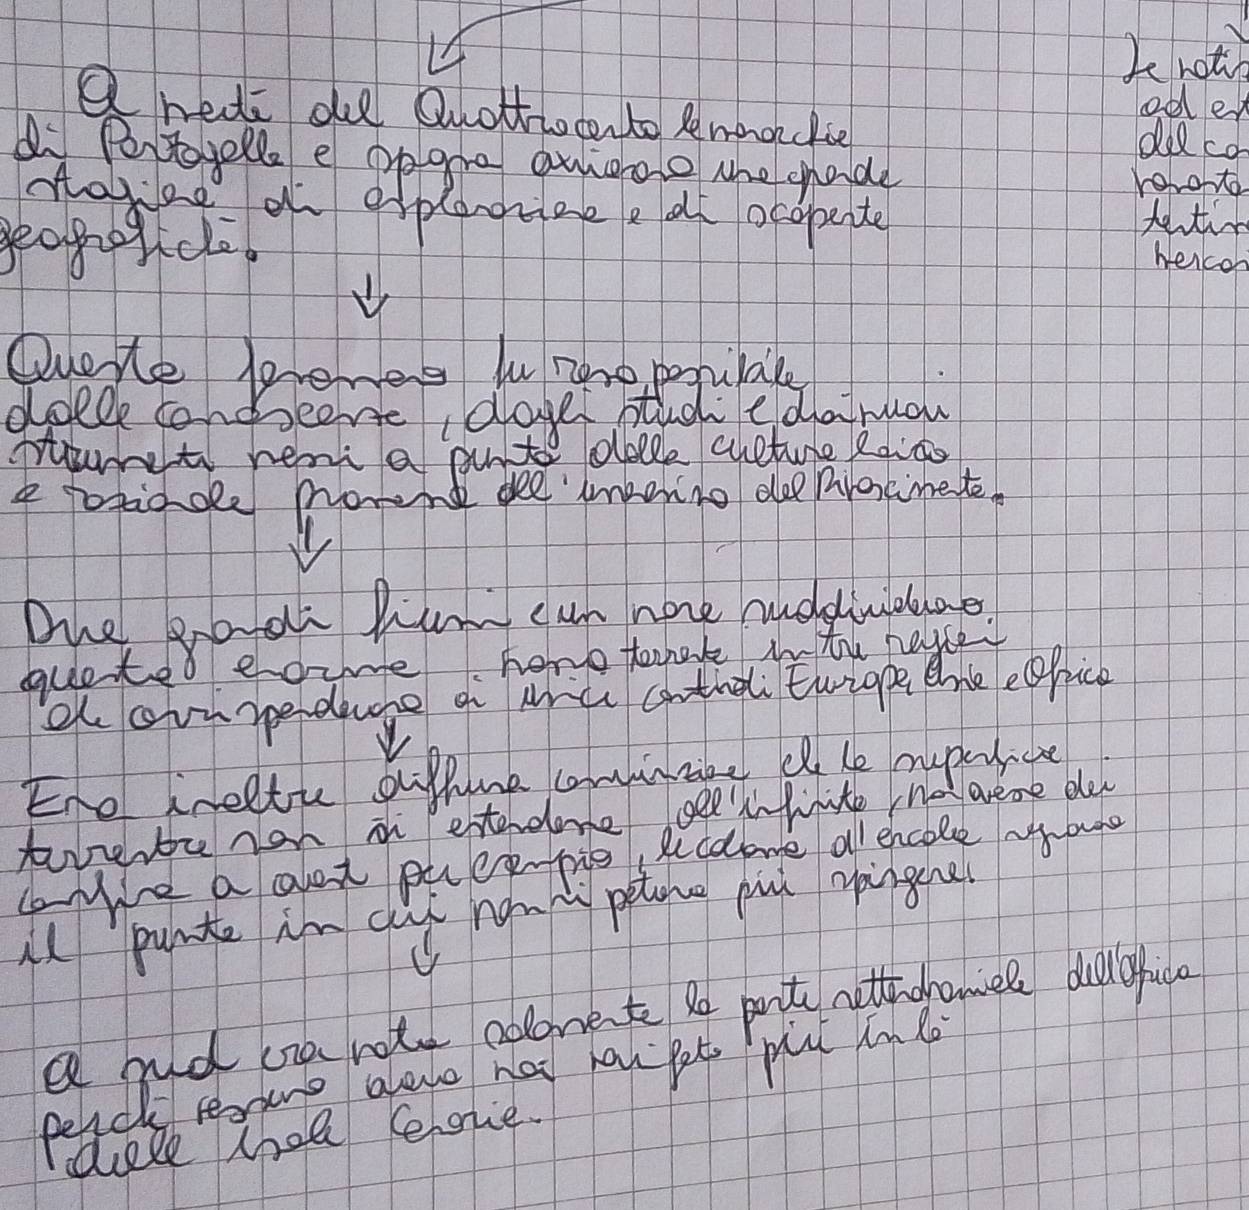 A metà del Quattrocento le monarchie
di Portogallo e Spagna aprirono una grande
stagione di esplorazione e di scoperte
geografiche.
Queste fenomeno fu reso possibile
dalle conoscenze, dagli studi e dai nuovi
strumenti messi a punto dalla cultura laica
e razionale dell'umanesimo del Rinascimento.
Due grandi fiumi e un mare suddividevano
questa enorme terrente in tre regioni
che corrispondevano ai continenti Europa, Asia e Africa
Era inoltre diffusa convinzione che la superficie
terrestre non si estendesse all'infinito, ma avesse dei
confini a ovest per esempio, le colonne d'ercole segnavano
il punto in cui non si poteva più spingersi
A sud era nota solamente la parte settentrionale dell'Africa
perché nessuno aveva mai più in là
delle Isole Canarie.
Le noti
ad es
del co
tentin